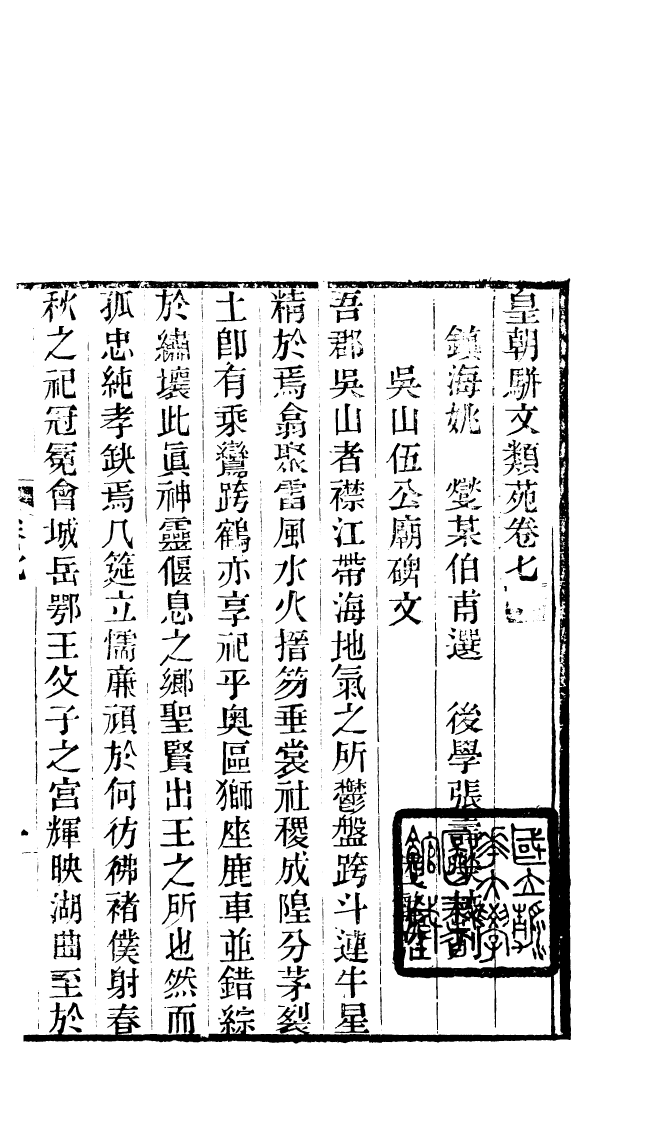 皇朝駢文類苑卷七
鎮海姚　燮某伯甫選　後學張壽
吳山伍公廟碑文
吾郡吳山者襟江帶海地氣之所鬱盤跨斗連牛星
精於焉翕聚雷風水火搢笏垂裳社稷成隍分茅裂
土卽有乘鸞跨鶴亦享祀乎奧區獅座鹿車並錯綜
於繡壤此眞神靈偃息之鄉聖賢出王之所也然而
孤忠純孝缺焉几筵立懦廉頑於何彷彿褚僕射春
秋之祀冠冕會城岳鄂王父子之宮輝映湖曲至於